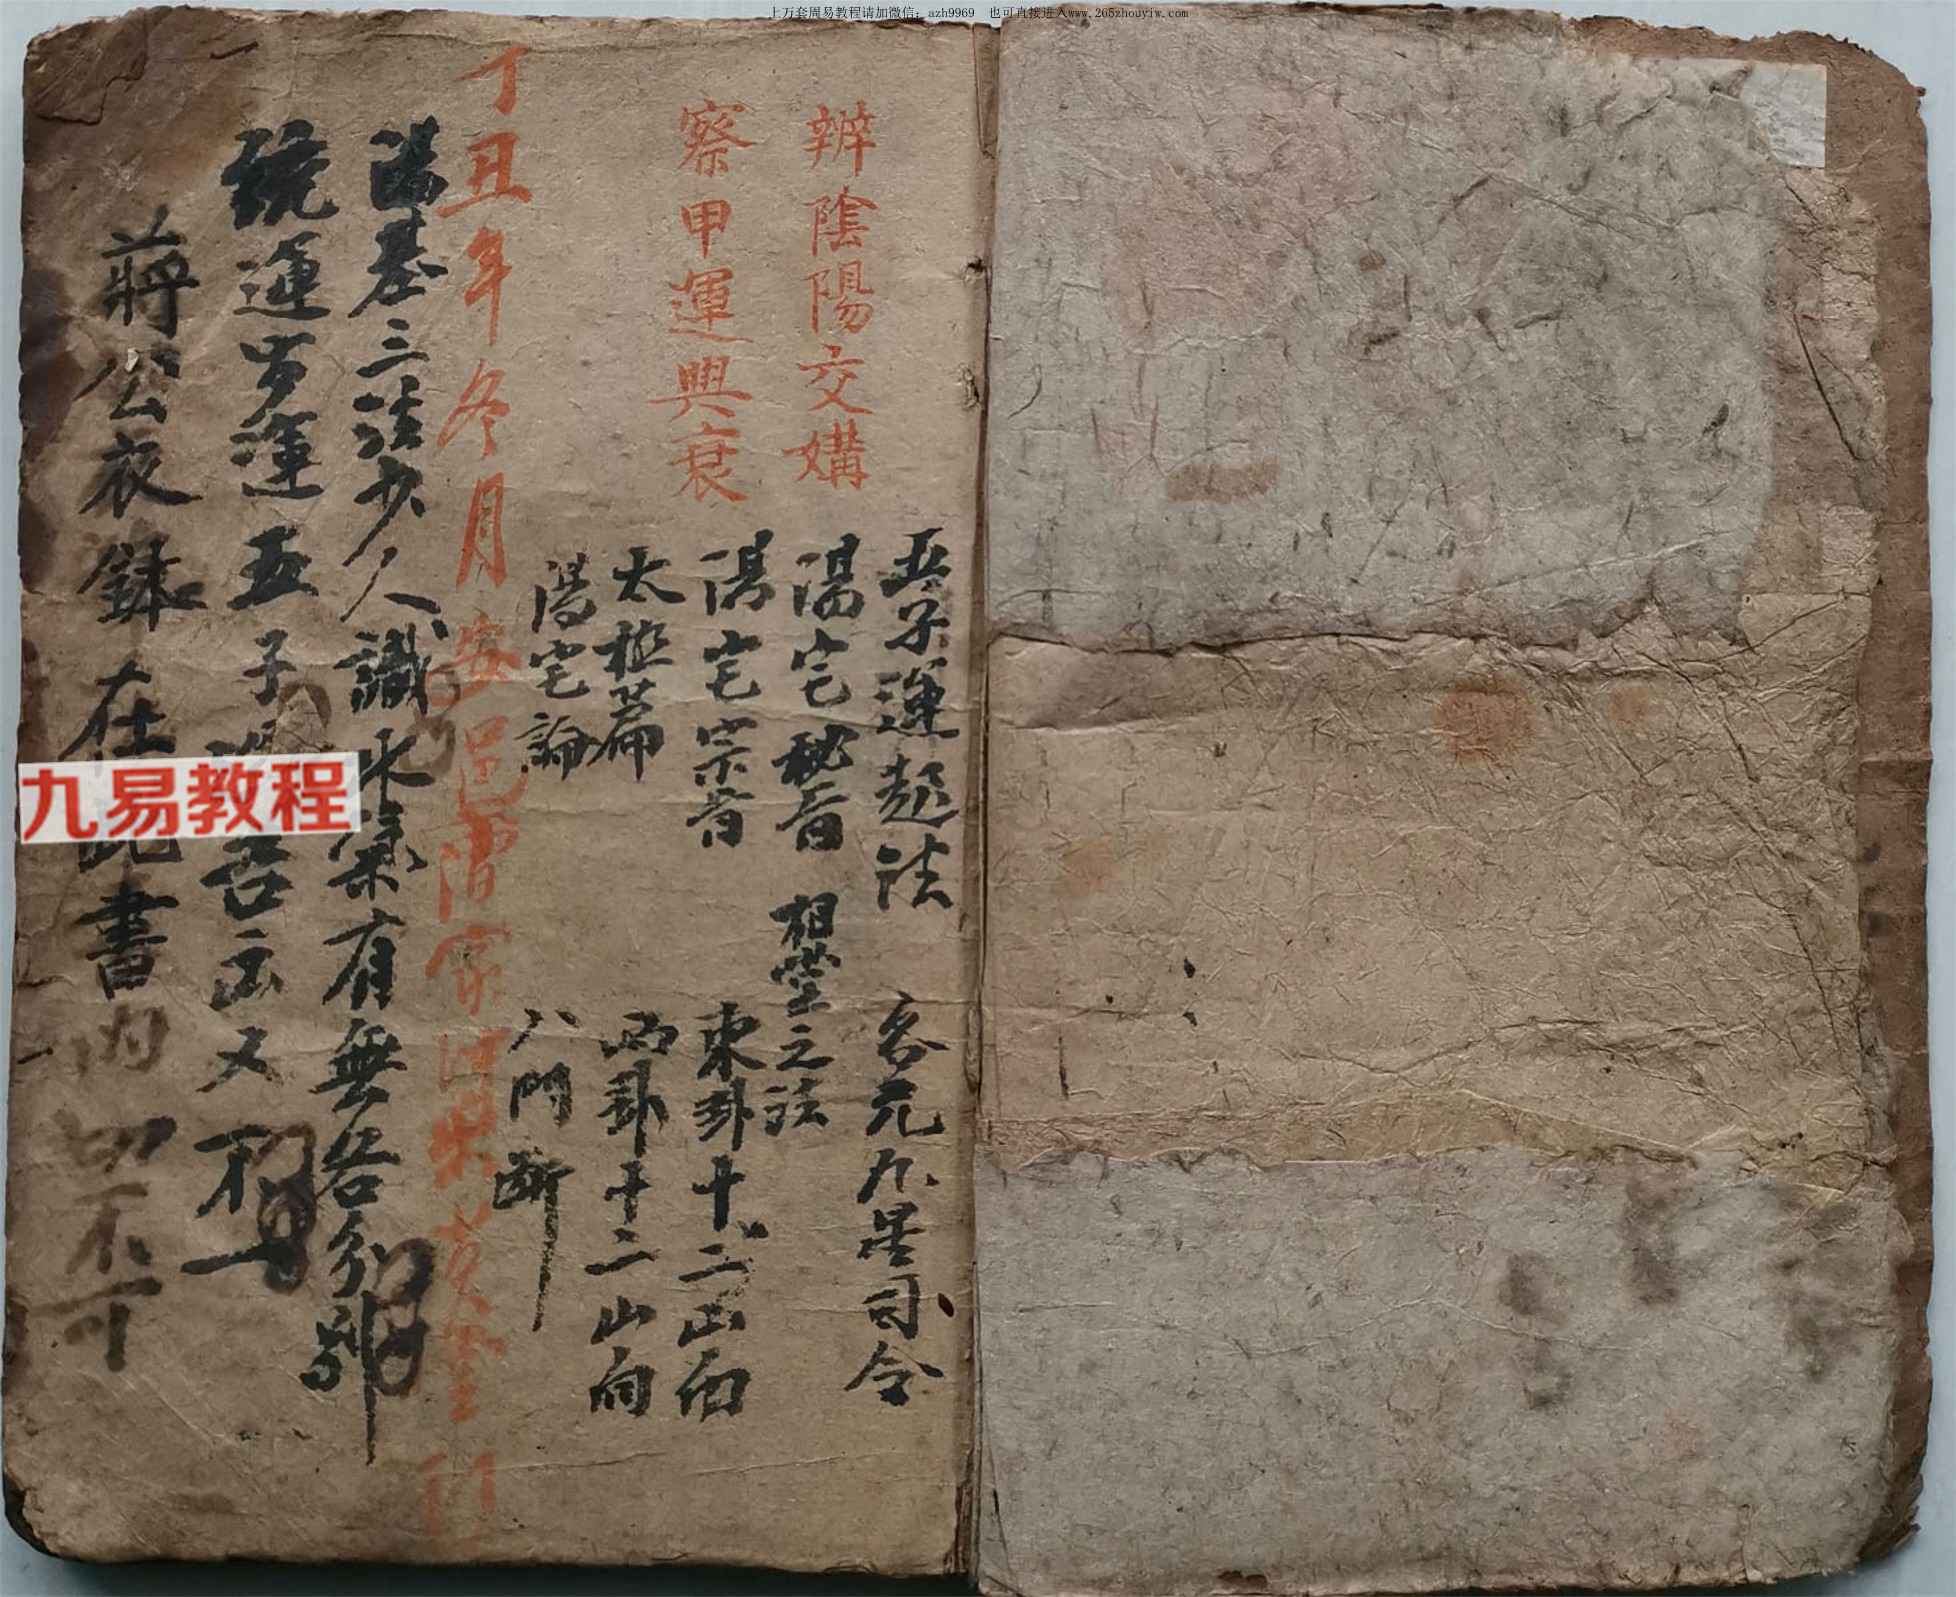 上万套周易教程请加微信：azh9969 也可直接进入www.265zhouyiw.com
辨陰陽交媾
察甲運興衰
五子運起法
客元九星司令
陽宅秘旨 相堂之法
陽宅宗旨
東卦十二山向
太極篇
西卦十二山向
陽宅論
八門斷
丁丑年冬月安邑
陽基三法少人識水氣有無各分別
統運步運五子 吉凶又不一
蔣公衣缽在此書內切不可
九易教程